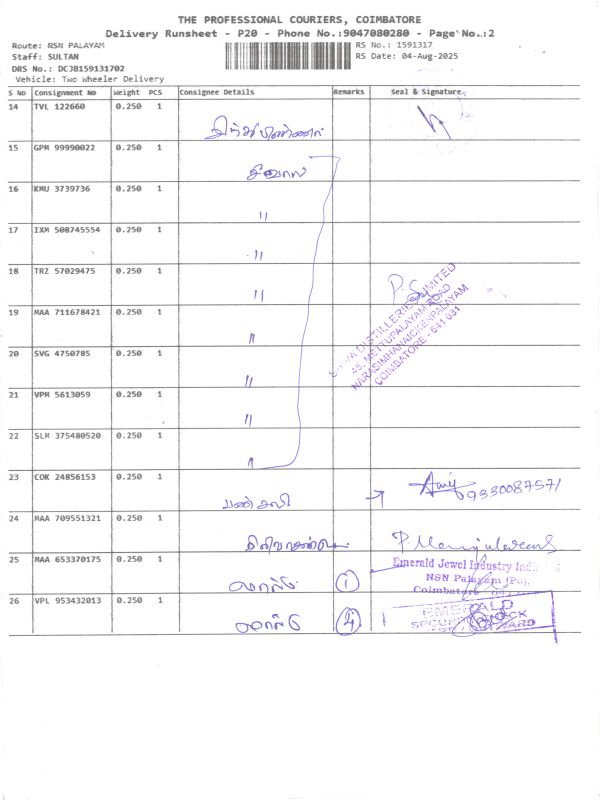 THE PROFESSIONAL COURIERS, COIMBATORE
Delivery Runsheet - P20 - Phone No.:9047080280 - Page No.:2
Route: NSN PALAYAM
Staff: SULTAN
DRS No.: DCJB159131702
Vehicle: Two Wheeler Delivery
RS No.: 1591317
RS Date: 04-Aug-2025
S No Consignment No Weight PCS Consignee Details Remarks Seal & Signature
14 TVL 122660 0.250 1
15 GPM 99990022 0.250 1
16 KMU 3739736 0.250 1 〃
17 IXM 508745554 0.250 1 〃
18 TRZ 57029475 0.250 1 〃
DISTILLERIES LIMITED
45, METTUPALAYAM ROAD
NARASIMHANAICKENPALAYAM
COIMBATORE - 641 031
19 MAA 711678421 0.250 1 〃
20 SVG 4750785 0.250 1 〃
21 VPM 5613059 0.250 1 〃
22 SLM 375480520 0.250 1 〃
23 COK 24856153 0.250 1 9330087571
24 MAA 709551321 0.250 1
25 MAA 653370175 0.250 1 1
Emerald Jewel Industry
NSN Palayam (Po),
Coimbatore
26 VPL 953432013 0.250 1
EMERALD